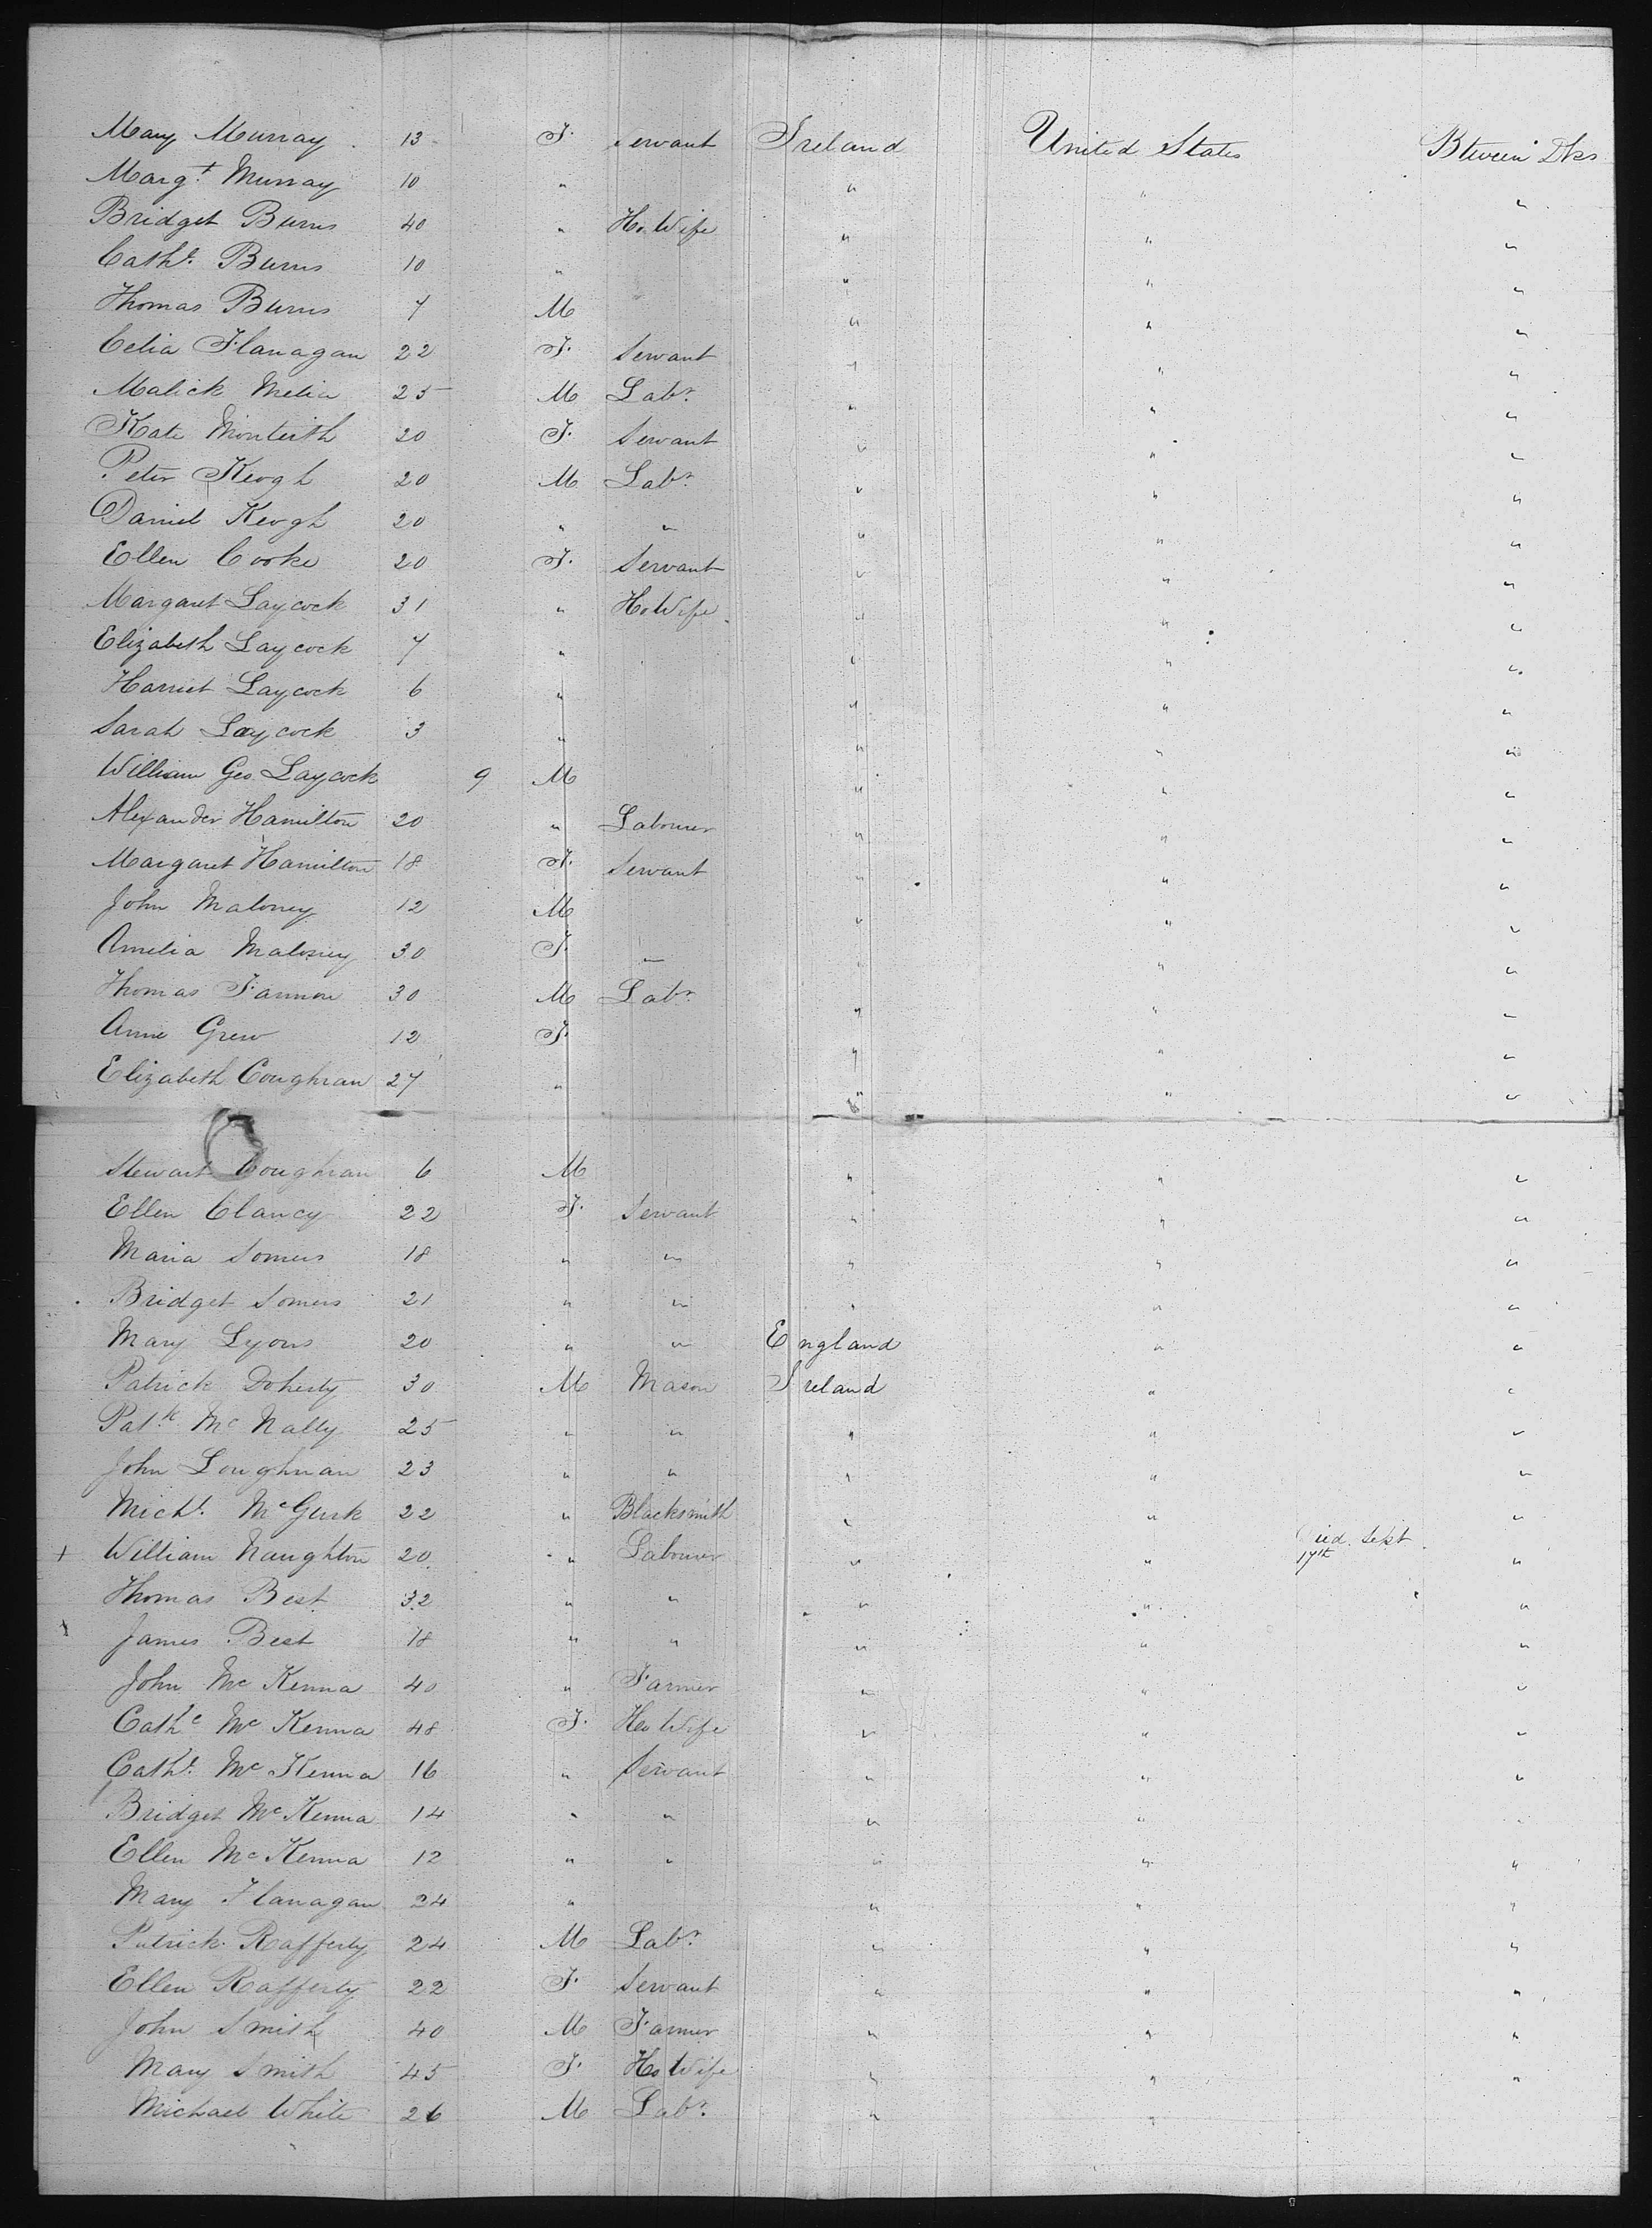 Mary Murray 13 F. Servant Ireland United States Btween Dks
Margt. Murray 10 " " " "
Bridget Burns 40 " Ho. Wife " " "
Cathe. Burns 10 " " " "
Thomas Burns 7 M " " "
Celia Flanagan 22 F. Servant " " "
Malick Melia 25 M Labr. " " "
Kate Monteith 20 F. Servant " " "
Peter Keogh 20 M Labr. " " "
Daniel Keogh 20 " " " " "
Ellen Cooke 20 F. Servant " " "
Margaret Laycock 31 " Ho Wife " " "
Elizabeth Laycock 7 " " " "
Harriet Laycock 6 " " " "
Sarah Laycock 3 " " " "
William Geo. Laycock 9 M " " "
Alexander Hamilton 20 " Labourer " " "
Margaret Hamilton 18 F. Servant " " "
John Maloney 12 M " " "
Amelia Maloney 30 F. — " " "
Thomas Fannon 30 M Labr. " " "
Anne Grew 12 F. " " "
Elizabeth Coughran 27 " " " "
Stewart Coughran 6 M " " "
Ellen Clancy 22 F. Servant " " "
Maria Somers 18 " " " " "
Bridget Somers 21 " " " " "
Mary Lyons 20 " " England " "
Patrick Doherty 30 M Mason Ireland " "
Patk. Mc Nally 25 " " " " "
John Loughnan 23 " " " " "
Michl. McGurk 22 " Blacksmith " " "
+ William Naughton 20 " Labourer " " Died Sept 17th "
Thomas Best 32 " " " " "
x James Best 18 " " " " "
John Mc Kenna 40 " Farmer " " "
Cathe Mc Kenna 48 F. Ho Wife " " "
Cathe. Mc Kenna 16 " Servant " " "
Bridget Mc Kenna 14 " " " " "
Ellen Mc Kenna 12 " " " " "
Mary Flanagan 24 " " " "
Patrick Rafferty 24 M Labr. " " "
Ellen Rafferty 22 F. Servant " " "
John Smith 40 M Farmer " " "
Mary Smith 45 F. Ho Wife " " "
Michael White 26 M Labr. " "